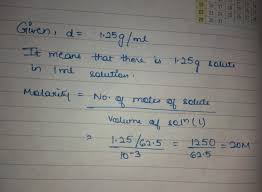 Given, d = 1.25g/ml
It means that there is 1.25g solute
in 1ml solution.
Molarity = No. of moles of solute
Volume of solⁿ (L)
= 1.25/62.5 = 1250 = 20M
10⁻³ 62.5